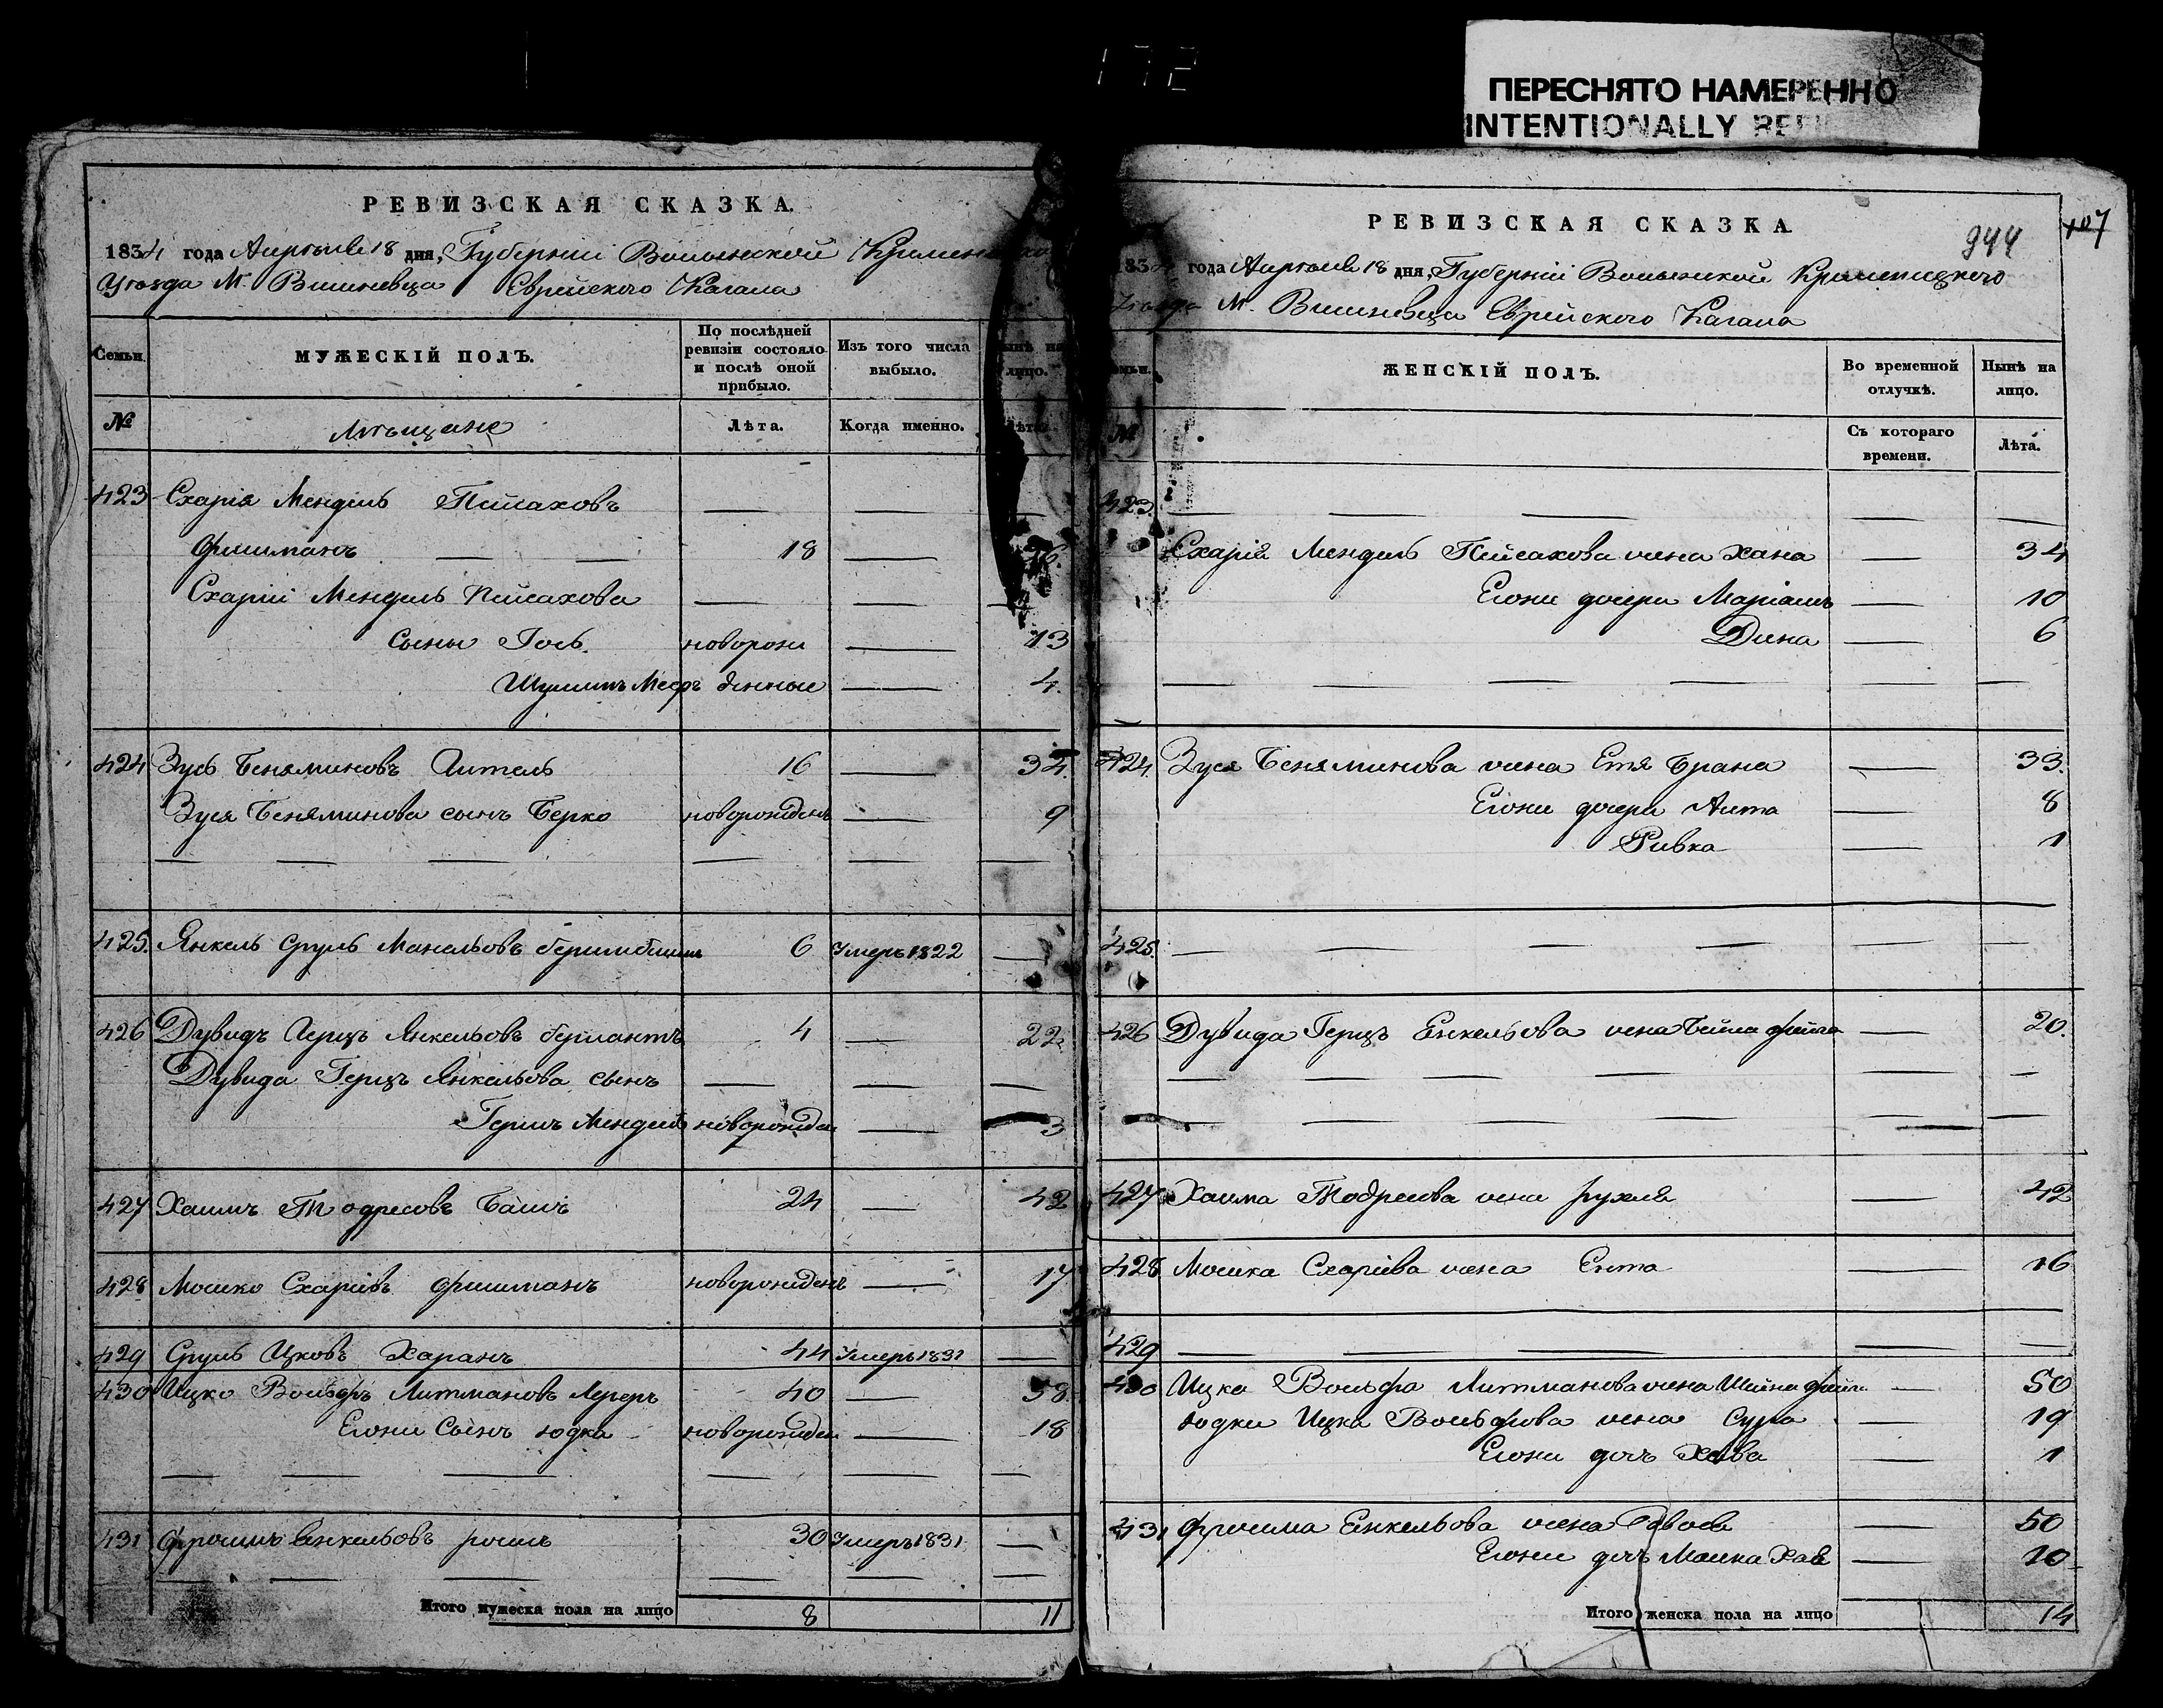 172
ПЕРЕСНЯТО НАМЕРЕННО
INTENTIONALLY
РЕВИЗСКАЯ СКАЗКА.
1834 года Апрѣля 18 дня, Губерніи Волынской
Уѣзда М. Вишневца Еврейского Кагала
Семьи.
МУЖЕСКІЙ ПОЛЪ.
По послѣдней ревизіи состояло и послѣ оной прибыло.
Изъ того числа выбыло.
лицо.
№
Мѣщане
Лѣта.
Когда именно.
423 Схарія Мендель Пейсаховъ — —
Фишманъ — — 18 —
Схарій Мендель Пейсахова — — —
сыны Іось. новорож — 13
Шулимъ Меер денные — 4.
424 Зусь Беняминовъ Аитель 16 — 34.
Зуся Беняминова сынъ Берко новорожденъ — 9
— — — — — —
425. Янкель Сруль 6 Умеръ 1822 —
426 Дувидъ Герцъ Янкельовъ 4 — 22.
Дувида Герцъ Янкельова сынъ — — —
Гершъ Мендель новорожден — 3
427 Хаимъ Тодресовъ 24 — 42
428 Мошко Схаріевъ Фишманъ новорожденъ — 17
429 Сруль Ицковъ Харанъ 44 Умеръ 1831 —
430 Ицко Вольфъ Литмановъ 40 — 58.
Егоже Сынъ Юдка новорожден — 18
— — — — — —
431 Фроимъ Енкельовъ 30 Умеръ 1831 —
— — — — — —
Итого мужеска пола на лицо 8 11
РЕВИЗСКАЯ СКАЗКА.
944
107
года Апрѣля 18 дня, Губерніи Волынской Кременецкого
Уѣзда М. Вишневца Еврейского Кагала
ЖЕНСКІЙ ПОЛЪ.
Во временной отлучкѣ.
Нынѣ на лицо.
№
Съ котораго времени.
Лѣта.
423. — — — — —
Схарія Мендель Пейсахова жена Хана — 34
Егоже дочери Маріамъ — 10
Дина — 6
— — — — — —
424. Зуся Беняминова жена Етя Брана — 33.
Егоже дочери Аита — 8
Ривка — 1
425. — — — — — —
426 Дувида Герцъ Енкельова жена Бейла Фейга — 20.
— — — — — —
— — — — —
427 Хаима Тодресова жена Рухля — 42
428 Мошка Схаріева жена Ента — 16
429 — — — — —
430 Ицка Вольфа Литманова жена Шейна — 50
Юдки Ицка Вольфова жена Сура — 19
Егоже дочь Хава — 1
431 Фроима Енкельова жена — 50
Егоже дочь — 10
Итого женска пола на лицо 14